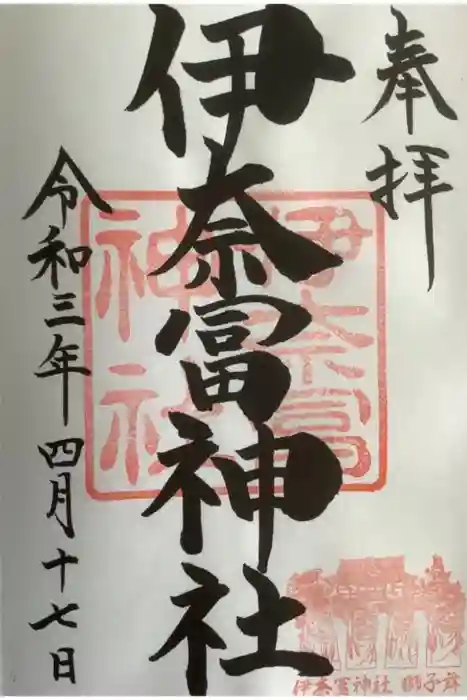 奉拝
伊奈冨神社
伊奈冨
神社
令和三年四月十七日
伊奈冨神社 獅子舞